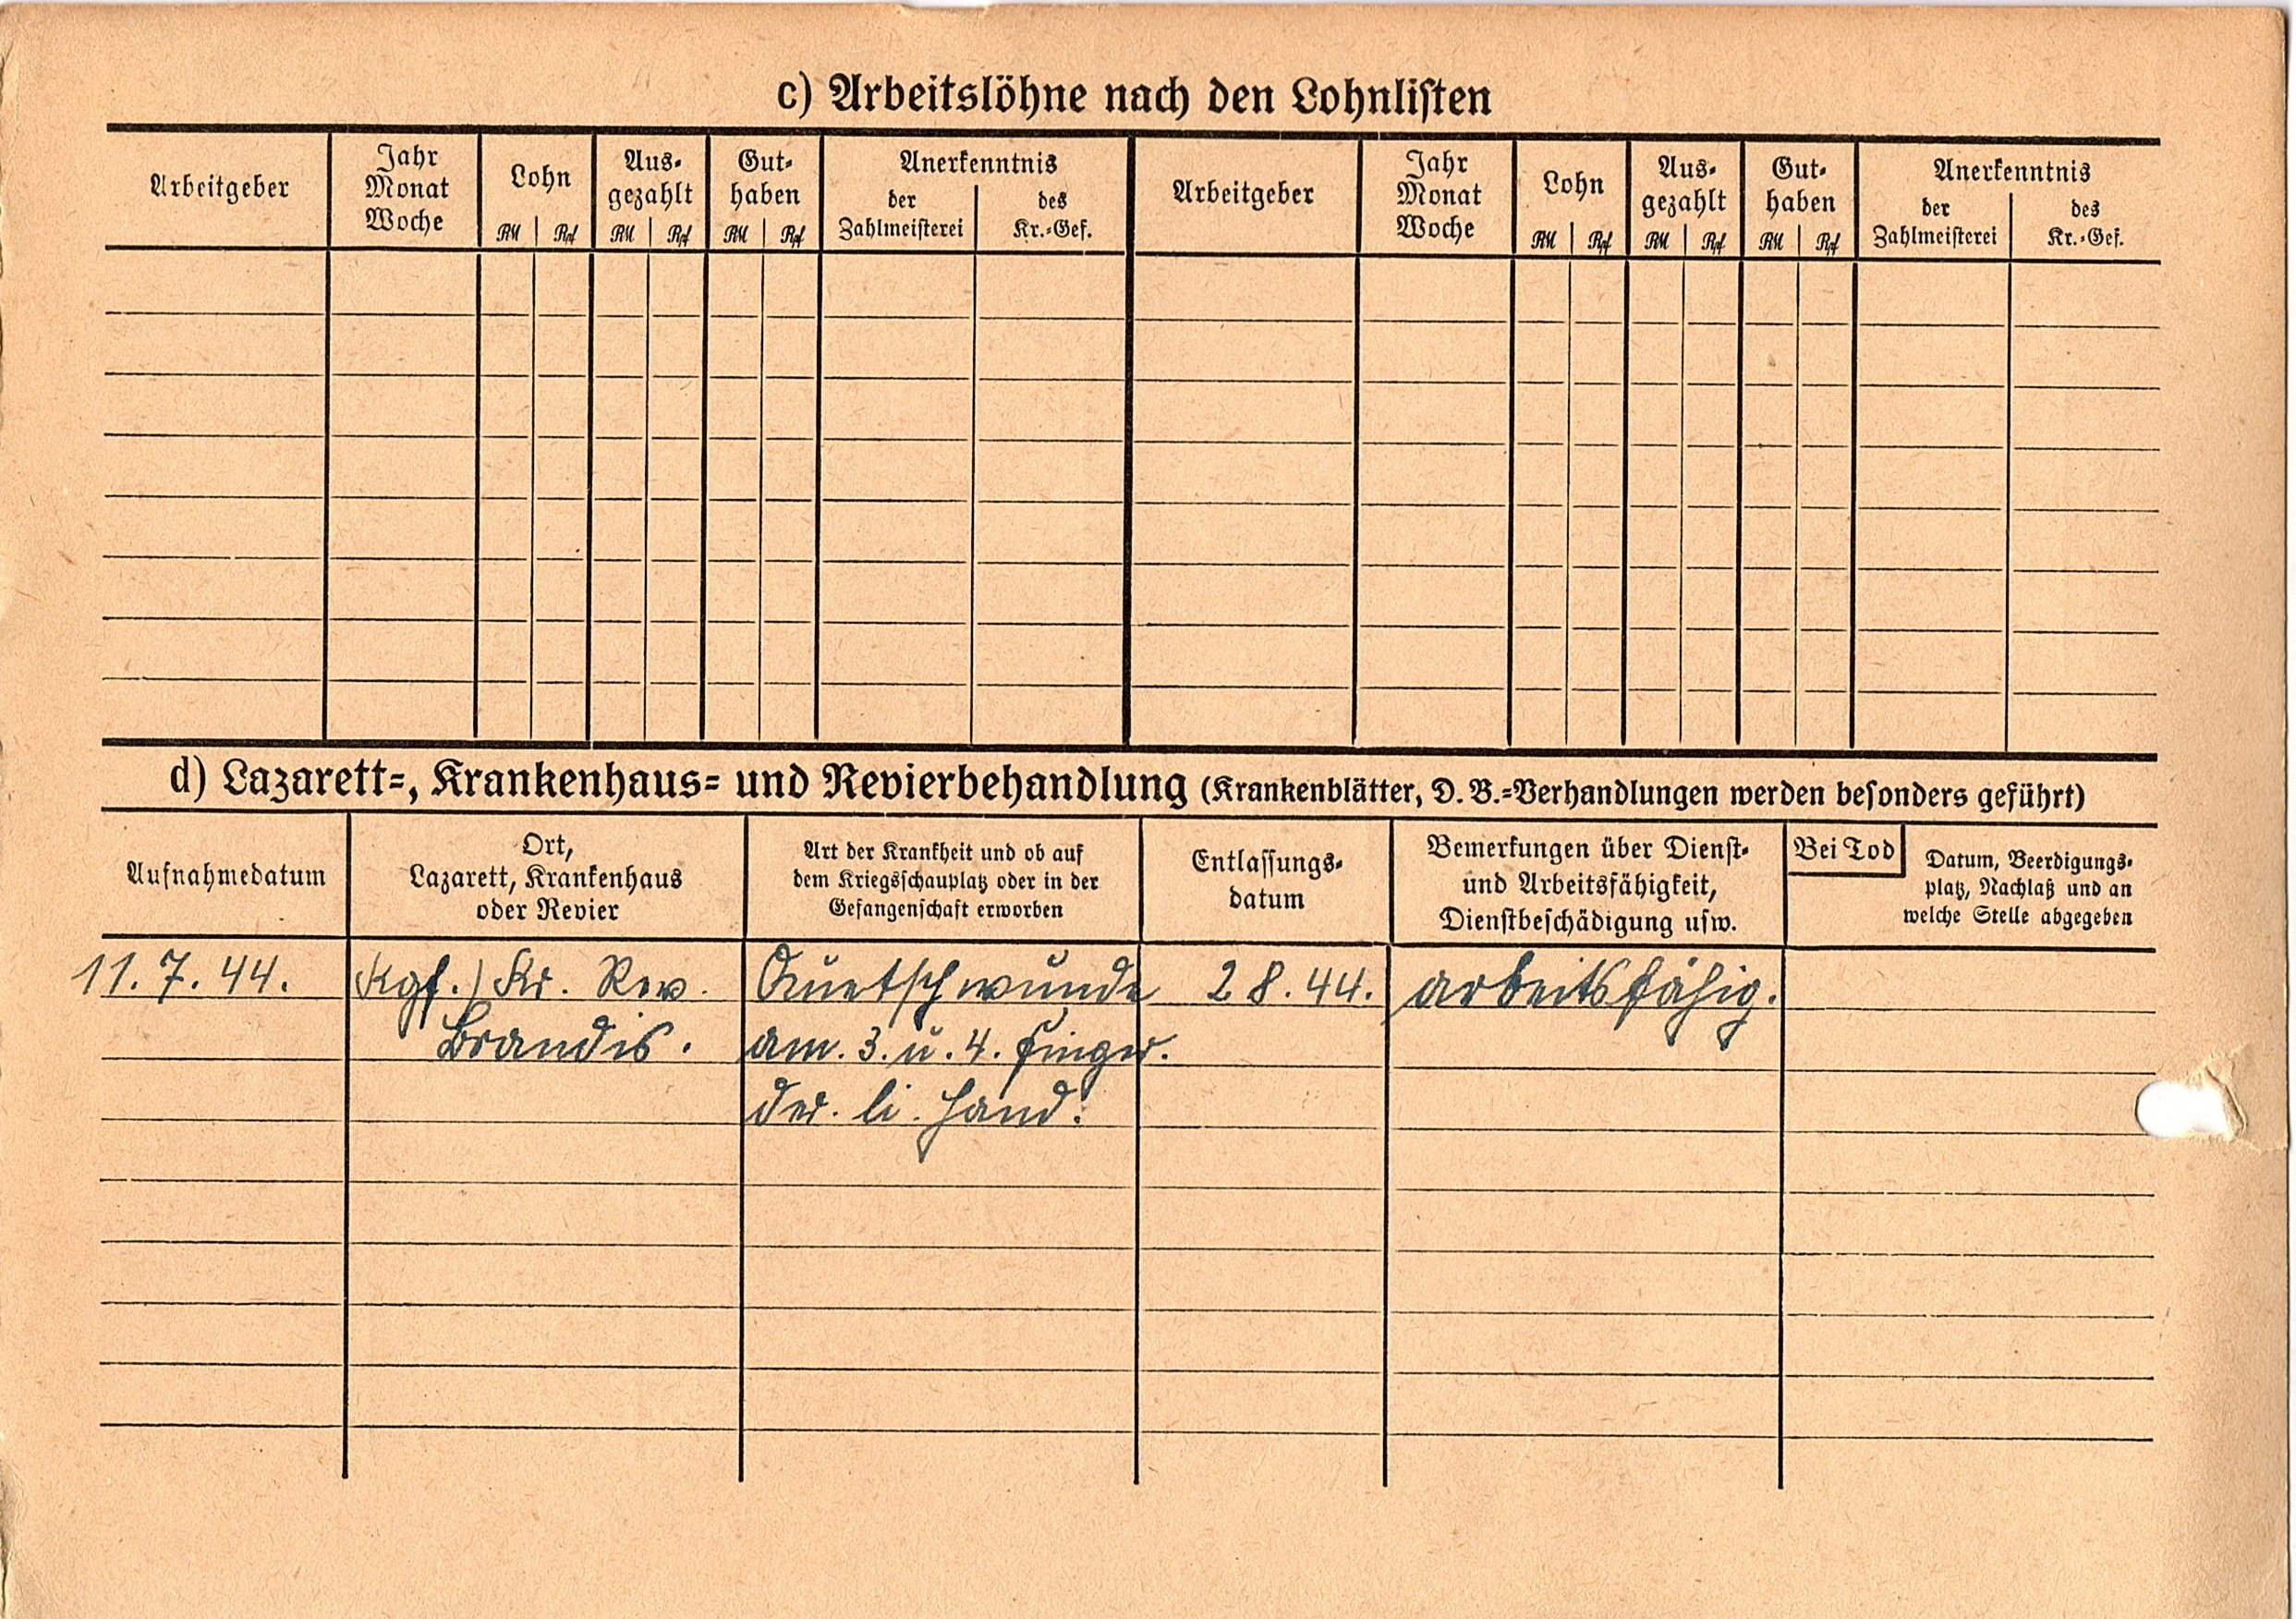 c) Arbeitslöhne nach den Lohnlisten
Arbeitgeber
Jahr
Monat
Woche
Lohn
RM Rpf
Aus-
gezahlt
RM Rpf
Gut-
haben
RM Rpf
Anerkenntnis
der
Zahlmeisterei
des
Kr.-Gef.
Arbeitgeber
Jahr
Monat
Woche
Lohn
RM Rpf
Aus-
gezahlt
RM Rpf
Gut-
haben
RM Rpf
Anerkenntnis
der
Zahlmeisterei
des
Kr.-Gef.
d) Lazarett-, Krankenhaus- und Revierbehandlung (Krankenblätter, D. B.-Verhandlungen werden besonders geführt)
Aufnahmedatum
Ort,
Lazarett, Krankenhaus
oder Revier
Art der Krankheit und ob auf
dem Kriegsschauplatz oder in der
Gefangenschaft erworben
Entlassungs-
datum
Bemerkungen über Dienst-
und Arbeitsfähigkeit,
Dienstbeschädigung usw.
Bei Tod
Datum, Beerdigungs-
platz, Nachlaß und an
welche Stelle abgegeben
11. 7. 44.
Kgf. / Kr. Rev.
Brandis.
Quetschwunde
am. 3. u. 4. Finger.
der. li. Hand.
2 8. 44.
arbeitsfähig.